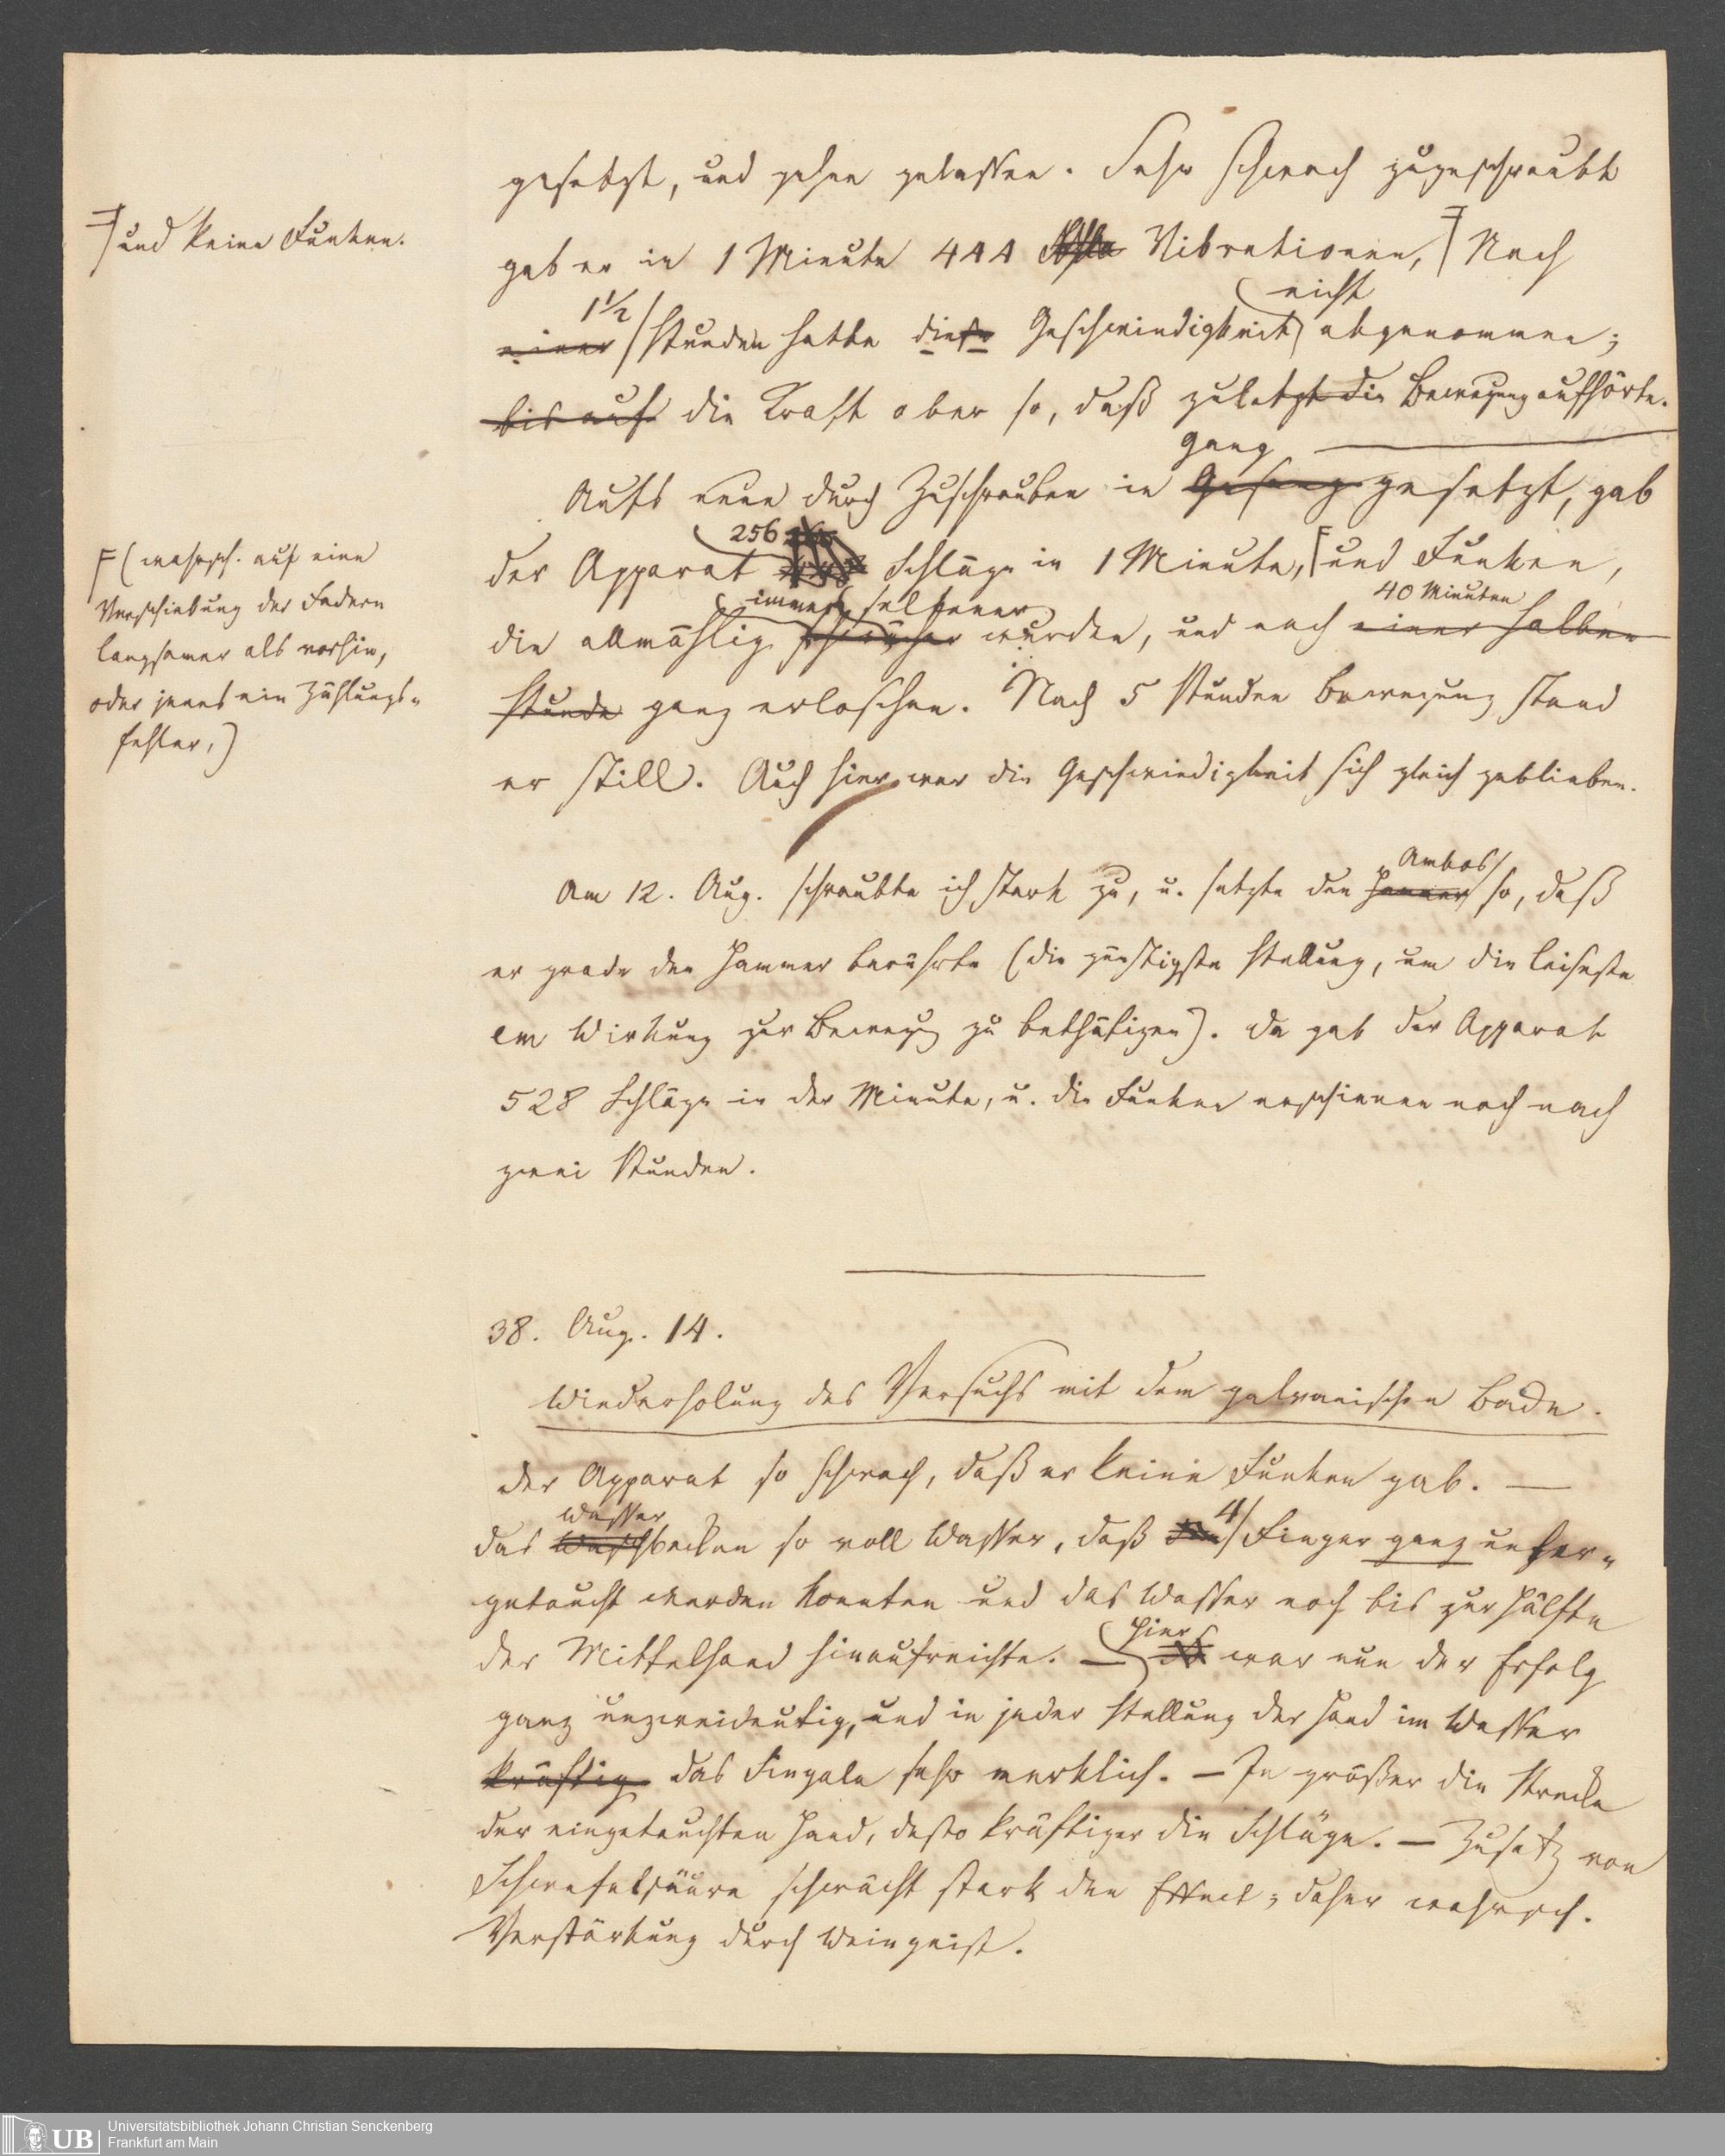 gesetzt, und gehen gelassen. Sehr schwach zugeschraubt
gab er in 1 Minute 444 Vibrationen, Nach
und keine Funken.
nicht
1½
einer Stunden hatte diese Geschwindigkeit abgenommen;
bis auf die Kraft aber so, daß zuletzt die Bewegung aufhörte.
Gang
Aufs neue durch Zuschrauben in Gesang gesetzt, gab
256
der Apparat Schläge in 1 Minute, und Funken,
immer seltener
40 Minuten
die allmählig schwächer wurden, und nach einer halben
Stunde ganz erloschen. Nach 5 Stunden Bewegung stand
er still. Auch hier war die Geschwindigkeit sich gleich geblieben.
(wahrsch. auf eine
Verschiebung der Federn
langsamer als vorhin,
oder jenes ein Zählungs-
fehler.)
Ambos
Am 12. Aug. schraubte ich stark zu, u. setzte den Hammer so, daß
er grade den Hammer berührte (die günstigste Stellung, um die leiseste
em Wirkung zur Bewegg zu bethätigen). Da gab der Apparat
528 Schläge in der Minute, u. die Funken erschienen noch nach
zwei Stunden.
38. Aug. 14.
Wiederholung des Versuchs mit dem galvanischen Bade.
Der Apparat so schwach, daß er keine Funken gab. —
Wasser
4
Das Waschbecken so voll Wasser, daß Finger ganz unter-
getaucht werden konnten und das Wasser noch bis zur Hälfte
Hier
der Mittelhand hinaufreichte. — war nun der Erfolg
ganz unzweideutig, und in jeder Stellung der Hand im Wasser
kräftig das Signale sehr merklich. — Je größer die Strecke
der eingetauchten Hand, desto kräftiger die Schläge. — Zusatz von
Schwefelsäure schwächt stark den Effect; daher wahrsch.
Verstärkung durch Weingeist.
Universitätsbibliothek Johann Christian Senckenberg
Frankfurt am Main
UB